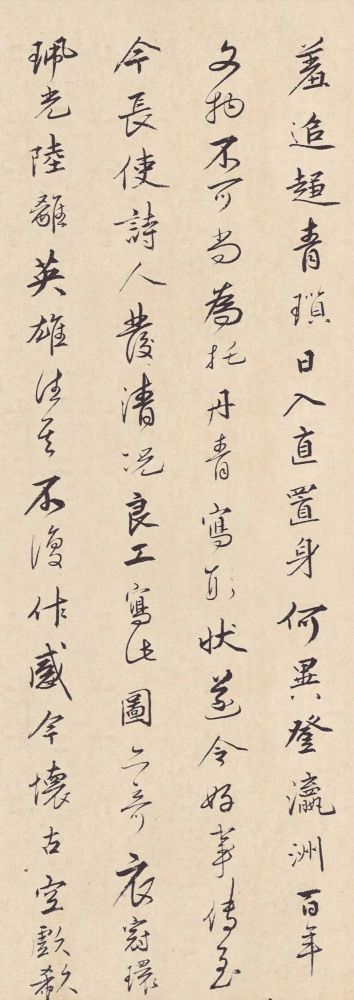 羞追趨青瑣日入直置身何異登瀛洲百年
文物不可當為托丹青寫形狀遂令好事傳至
今長使詩人發清況良工寫此圖亦奇衣冠環
珮光陸離英雄往矣不復作感今懷古空歔欷